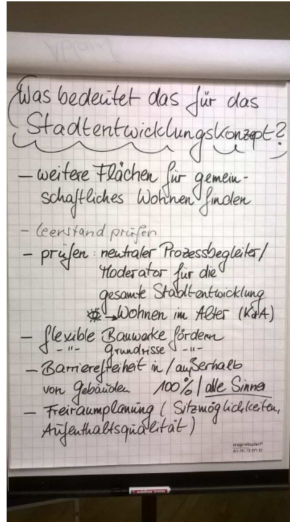 Was bedeutet das für das
Stadtentwicklungskonzept?
– weitere Flächen für gemein-
schaftliches Wohnen finden
– Leerstand prüfen
– prüfen: neutraler Prozessbegleiter/
Moderator für die
gesamte Stadtentwicklung
→ Wohnen im Alter (KdA)
– flexible Bauwerke fördern
– -"- Grundrisse -"-
– Barrierefreiheit in/außerhalb
von Gebäuden 100% / alle Sinne
– Freiraumplanung (Sitzmöglichkeiten,
Aufenthaltsqualität)